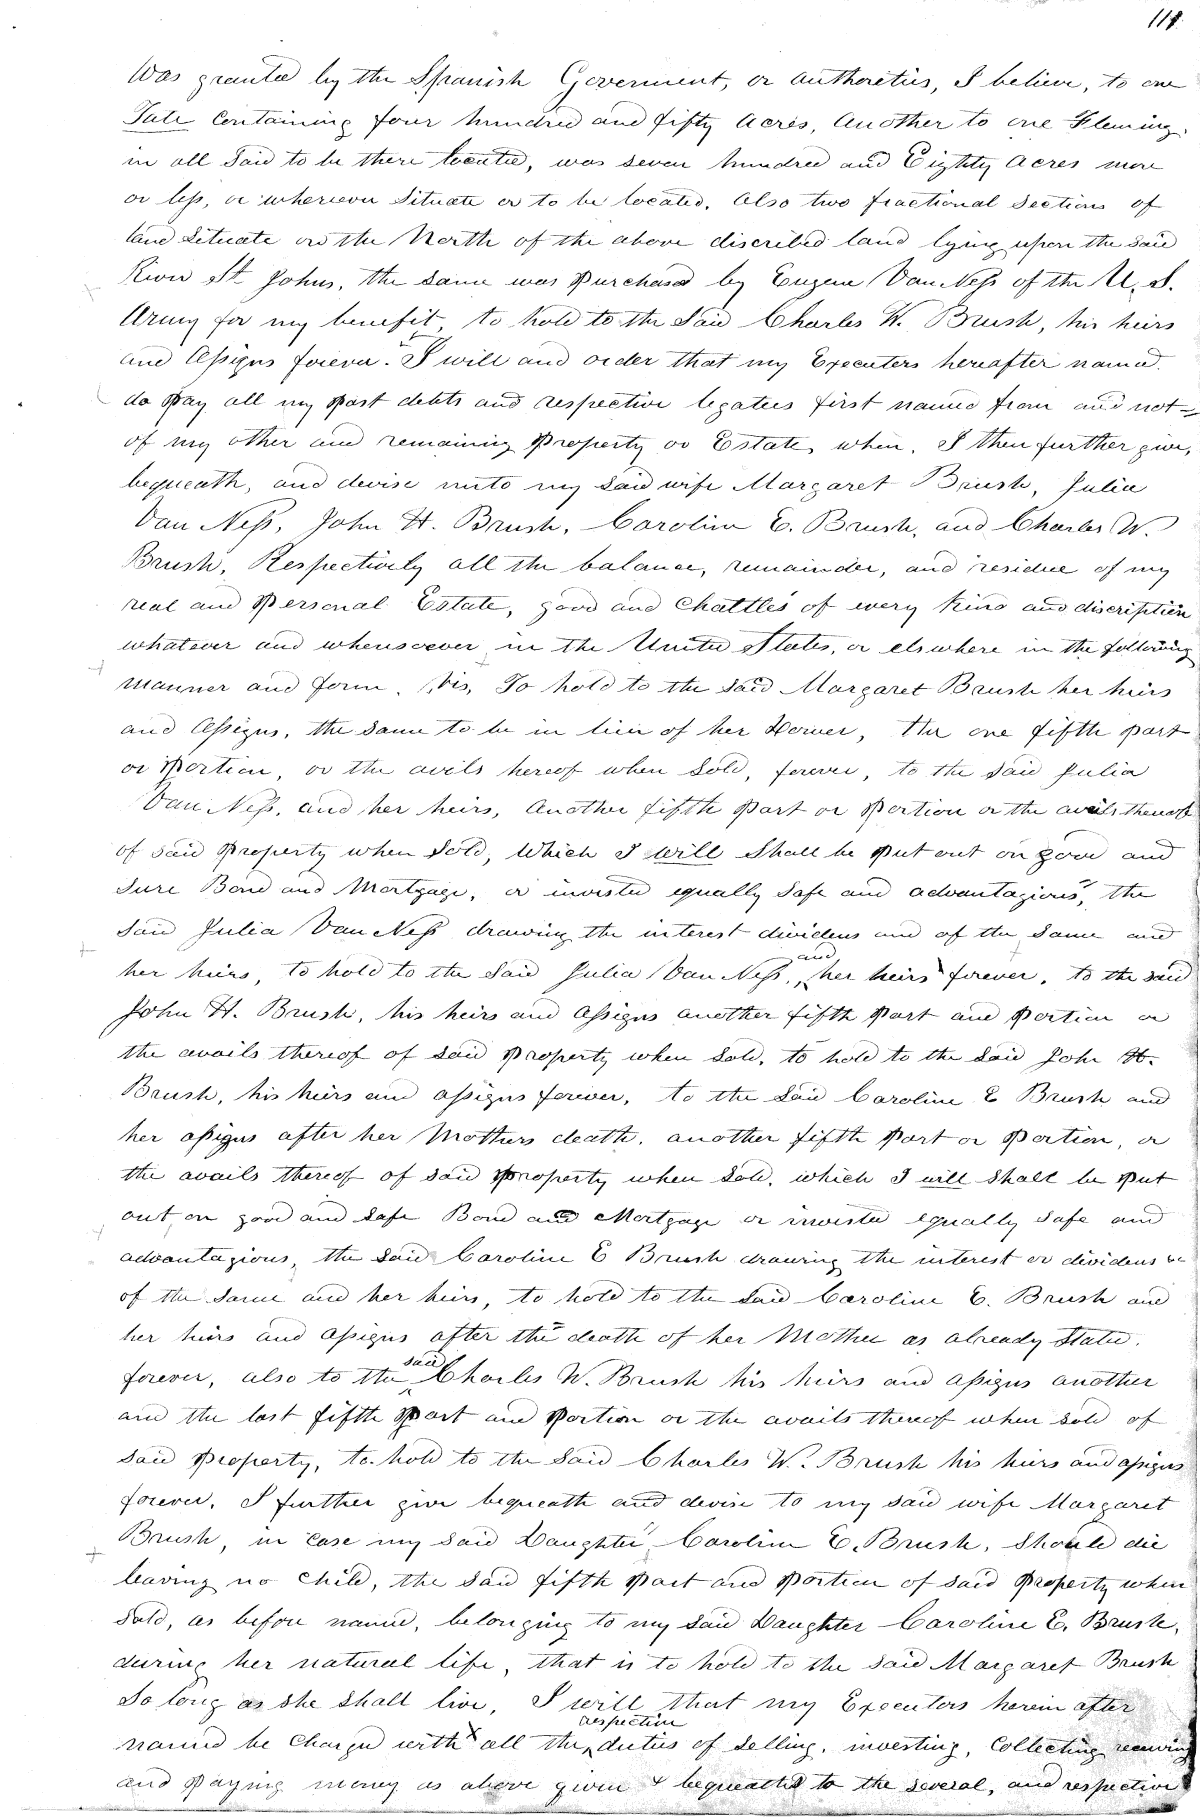 118
Was granted by the Spanish Goverment, or authoreties, I believe, to one
Tate containing four hundred and fifty acres, Another to one Fleming.
in all Said to be there located, was seven hundred and Eighty acres more
or less, or wherever Situate or to be located. Also two fractional Sections of
land Situate on the North of the above discribed land lying upon the said
River St Johns, the same was Purchased by Eugene Van Ness of the U. S.
Army for my benefit, to hold to the Said Charles W. Brush, his heirs
and Assigns forever. I will and order that my Executers hereafter named.
do Pay all my Past debts and respective legatees first named from and not
of my other and remaining Property or Estate, when, I then further give,
bequeath, and devise unto my Said wife Margaret Brush, Julia
Van Ness, John H. Brush, Caroline E. Brush, and Charles W.
Brush, Respectively all the balance, remainder, and residue of my
real and Personal Estate, good and Chattles of every kind and discription
whatever and whensoever in the United States, or elswhere in the following
manner and form. Vis, To hold to the said Margaret Brush her heirs
and Assigns, the same to be in lieu of her Dower, the one fifth part
or Portion, or the avils hereof when Sold, forever, to the said Julia
Van Ness, and her heirs, Another fifth Part or Portion or the avails thereof
of said Property when Sold, Which I will Shall be Put out on good and
Sure Bond and Mortgage, or invested equally Safe and advantagious, the
Said Julia Van Ness drawing the interest dividens and of the Same and
her heirs, to hold to the Said Julia Van Ness, and her heirs forever, to the said
John H. Brush, his heirs and Assigns another fifth Part and Portion or
the avails thereof of Said Property when Sold, to hold to the Said John H.
Brush, his heirs and assigns forever, to the Said Caroline E Brush and
her assigns after her Mothers death, another fifth Part or Portion, or
the avails thereof of said Property when Sold, which I will Shall be Put
out on good and Safe Bond and Mortgage or invested equally Safe and
advantagious, the Said Caroline E Brush drawing the interest or dividens
of the Same and her heirs, to hold to the Said Caroline E. Brush and
her heirs and assigns after the death of her Mother as already Stated.
forever, also to the said Charles W. Brush his heirs and assigns another
and the last fifth Part and Portion or the avails thereof when Sold of
Said Property, to hold to the Said Charles W. Brush his heirs and assigns
forever. I further give bequeath and devise to my said wife Margaret
Brush, in Case my Said Daughter Caroline E. Brush, Should die
leaving no Child, the Said fifth Part and Portion of Said Property when
Sold, as before named, belonging to my Said Daughter Caroline E. Brush,
during her natural life, that is to hold to the Said Margaret Brush
So long as she Shall live, I will that my Executors herein after
named be Charged with all the respective duties of Selling, investing, Collecting receiving
and Paying money as above given & bequeathed to the several, and respective